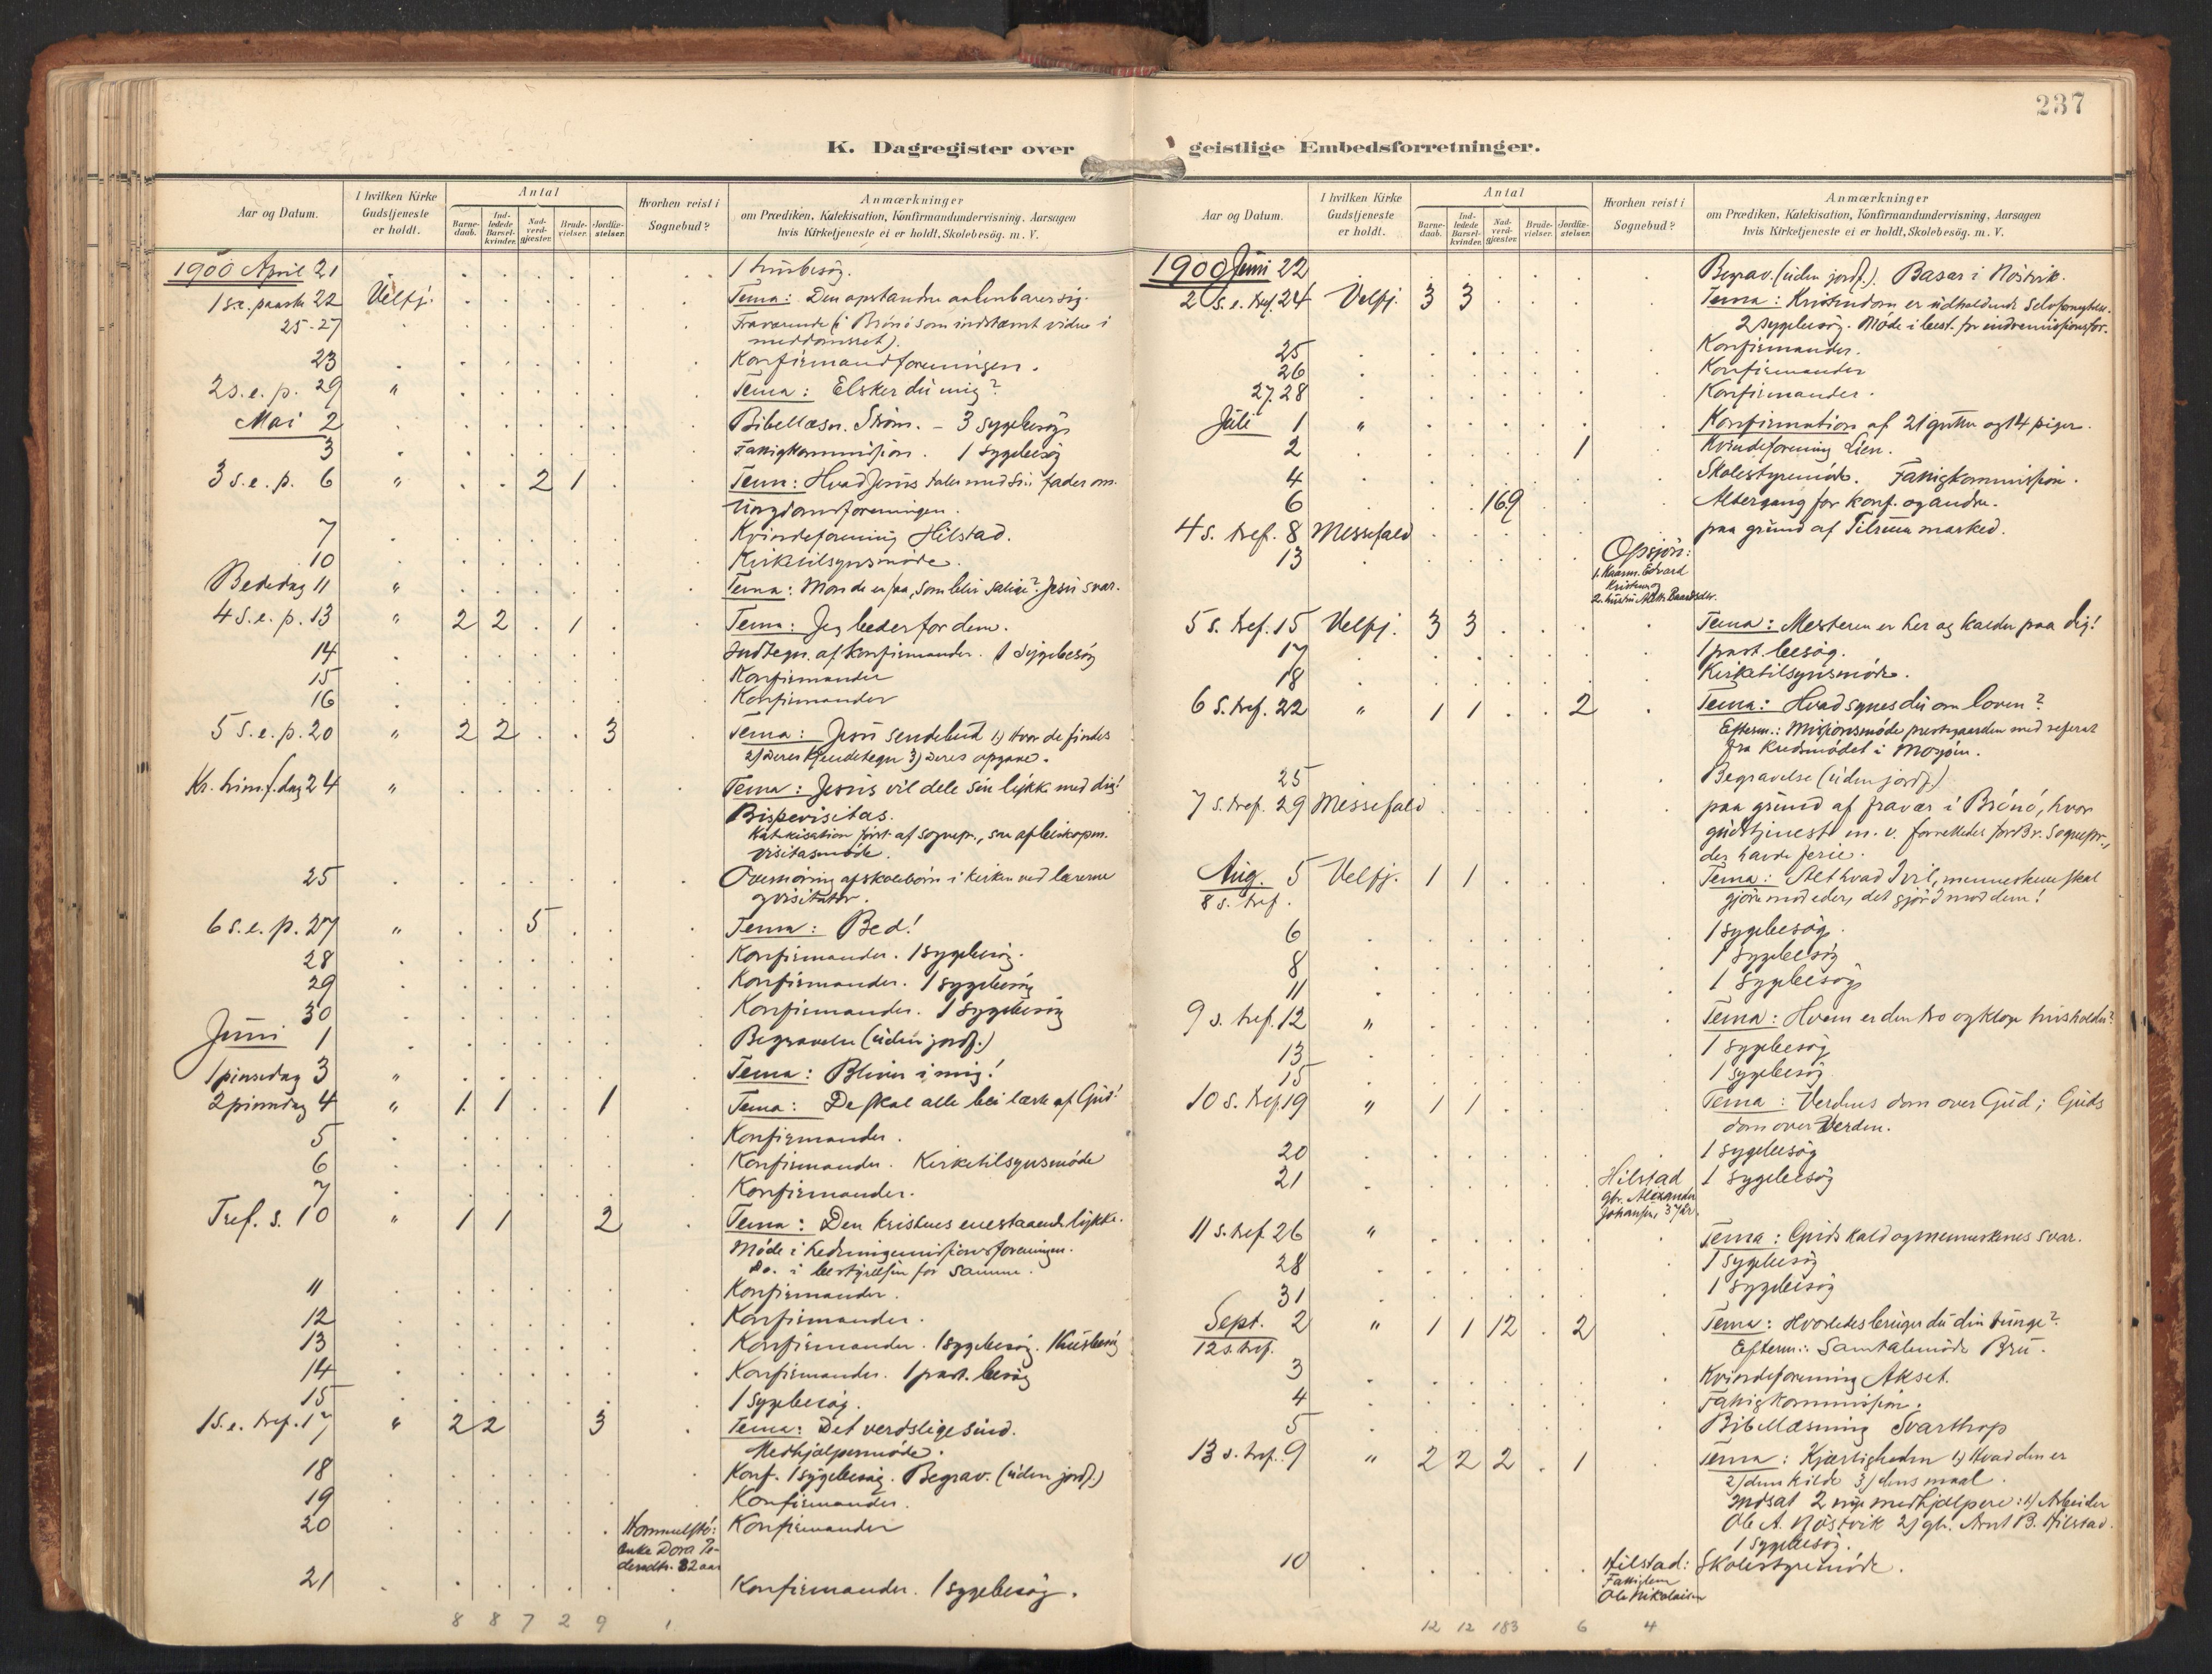 237
K. Dagregister over geistlige Embedsforretninger.
Aar og Datum.
I hvilken Kirke Gudstjeneste er holdt.
Antal
Barne-daab.
Ind-ledede Barsel-kvinder.
Nad-verd-gjæster.
Brude-vielser.
Jordfæ-stelser.
Hvorhen reist i Sognebud?
Anmærkninger
om Prædiken, Katekisation, Konfirmandundervisning, Aarsagen
hvis Kirketjeneste ei er holdt, Skolebesøg. m. V.
1900 April 21 1 husbesøg.
1 s.e. paaske 22 Velfj. Tema: Den opstandne aabenbarer sig.
25-27 Fraværende (i Brønø som indstævnt vidne i
meddomsret).
23 Konfirmandforeningen.
2 s.e.p. 29 " Tema: Elsker du mig?
Mai 2 Bibellæsn. Strøm. - 3 sygebesøg
3 Fattigkommission. 1 sygebesøg
3 s.e.p. 6 " 2 1 Tema: Hvad Jesus taler med sin fader om.
Ungdomsforeningen.
7 Kvindeforening Hilstad.
10 Kirketilsynsmøde.
Bededag 11 " Tema: Mon de er faa, som blir salige? Jesu svar.
4 s.e.p. 13 " 2 2 1 Tema: Jeg beder for dem.
14 Indtegn. af konfirmander. 1 sygebesøg
15 Konfirmander
16 Konfirmander
5 s.e.p. 20 " 2 2 3 Tema: Jesu sendebud 1) Hvor de findes
2) Deres kjendetegn 3) Deres opgave.
Kr. himf. dag 24 " Tema: Jesus vil dele sin lykke med dig!
Bispevisitas.
Katekisation først af sognepr., saa af biskopen.
Visitasmøde.
25 Overhøring af skolebørn i kirken ved lærerne
og visitator.
6 s.e.p. 27 " 5 Tema: Bed!
28 Konfirmander. 1 sygebesøg.
29 Konfirmander. 1 sygebesøg
30 Konfirmander. 1 sygebesøg
Juni 1 Begravelse (uden jordf.)
1 pinsedag 3 " Tema: Bliver i mig!
2 pinsedag 4 " 1 1 1 Tema: De skal alle bli lærte af Gud!
5 Konfirmander.
6 Konfirmander. Kirketilsynsmøde
7 Konfirmander.
Tref. s. 10 " 1 1 2 Tema: Den kristnes enestaaende lykke.
Møde i hedningemissionsforeningen.
Do. i bestyrelsen for samme.
11 Konfirmander.
12 Konfirmander.
13 Konfirmander. 1 sygebesøg. 1 husbesøg
14 Konfirmander. 1 privt. besøg
15 1 sygebesøg.
1 s.e. tref. 17 " 2 2 3 Tema: Det verdslige sind.
Medhjælpermøde.
18 Konf. 1 sygebesøg. Begrav. (uden jordf.)
19 Konfirmander.
20 Hommelstø: Konfirmander
Enke Dora Pe-
dersdtr. 82 aar
21 Konfirmander. 1 sygebesøg.
8 8 7 2 9 1
Aar og Datum.
I hvilken Kirke Gudstjeneste er holdt.
Antal
Barne-daab.
Ind-ledede Barsel-kvinder.
Nad-verd-gjæster.
Brude-vielser.
Jordfæ-stelser.
Hvorhen reist i Sognebud?
Anmærkninger
om Prædiken, Katekisation, Konfirmandundervisning, Aarsagen
hvis Kirketjeneste ei er holdt, Skolebesøg. m. V.
1900 Juni 22 Begrav. (uden jordf.). Basar i Nøstvik.
2 s.e. tref. 24 Velfj. 3 3 Tema: Kristendom er udholdende selvfornegtelse.
2 sygebesøg. Møde i best. for indremissionsfor.
25 Konfirmander.
26 Konfirmander
27. 28 Konfirmander.
Juli 1 " Konfirmation af 21 gutter og 14 piger.
2 1 Kvindeforening Lien.
4 Skolestyremøde. Fattigkommission.
6 169 Altergang for konf. og andre.
4 s. tref. 8 Messefald paa grund af Tilrem marked.
13 Opsjøn:
1. Kaarm. Edvard
Kristensen
5 s. tref. 15 Velfj. 3 3 Tema: Mesteren er her og kalder paa dig!
17 1 privt. besøg.
18 Kirketilsynsmøde.
6 s. tref. 22 " 1 1 2 Tema: Hvad synes du om loven?
Efterm.: Missionsmøde prestegaarden med referat
fra kredsmødet i Mosjøen.
25 Begravelse (uden jordf.)
7 s. tref. 29 Messefald paa grund af fravær i Brønø, hvor
gudstjenest m. v. forrettedes for Br. sognepr.,
der havde ferie.
Aug. 5 Velfj. 1 1 Tema: Alt hvad I vil, menneskene skal
8 s. tref. gjøre mod eder, det gjør I mod dem!
6 1 sygebesøg.
8 1 sygebesøg
11 1 sygebesøg
9 s. tref. 12 " Tema: Hvem er den tro og kloge husholder?
13 1 sygebesøg
15 1 sygebesøg
10 s. tref. 19 " 1 1 Tema: Verdens dom over Gud; Guds
dom over Verden.
20 1 sygebesøg
21 Hilstad 1 sygebesøg
gbr. Alexander
Johansen, 37 aar.
11 s. tref. 26 " Tema: Guds kald og menneskenes svar.
28 1 sygebesøg
31 1 sygebesøg
Sept. 2 " 1 1 12 2 Tema: Hvorledes bruger du din tunge?
12 s. tref. Efterm.: Samtalemøde Bru.
3 Kvindeforening Akset.
4 Fattigkommission.
5 Bibellæsning Svarthop
13 s. tref. 9 " 2 2 2 1 Tema: Kjærligheden 1) Hvad den er
2) dens kilde 3) dens maal.
Indsat 2 nye medhjælpere: 1) Arbeider
Ole A. Nøstvik 2) gbr. Arnt B. Hilstad.
1 sygebesøg.
10 Hilstad: Skolestyremøde.
Fattiglem
Ole Nikolaisen
12 12 183 6 4